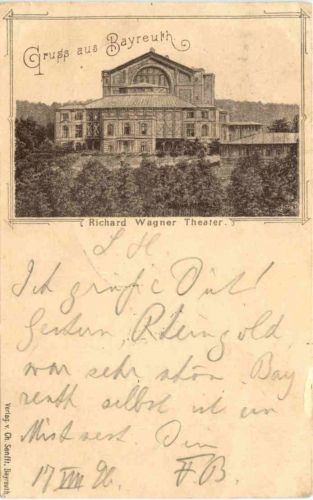 Gruss aus Bayreuth
Richard Wagner Theater.
L H.
Ich grüße Dich!
Gestern, Rheingold,
war sehr schön. Bay
reuth selbst ist ein
Mistnest. Dein
17 VIII 96. F.B.
Verlag v. Ch. Senfft, Bayreuth.